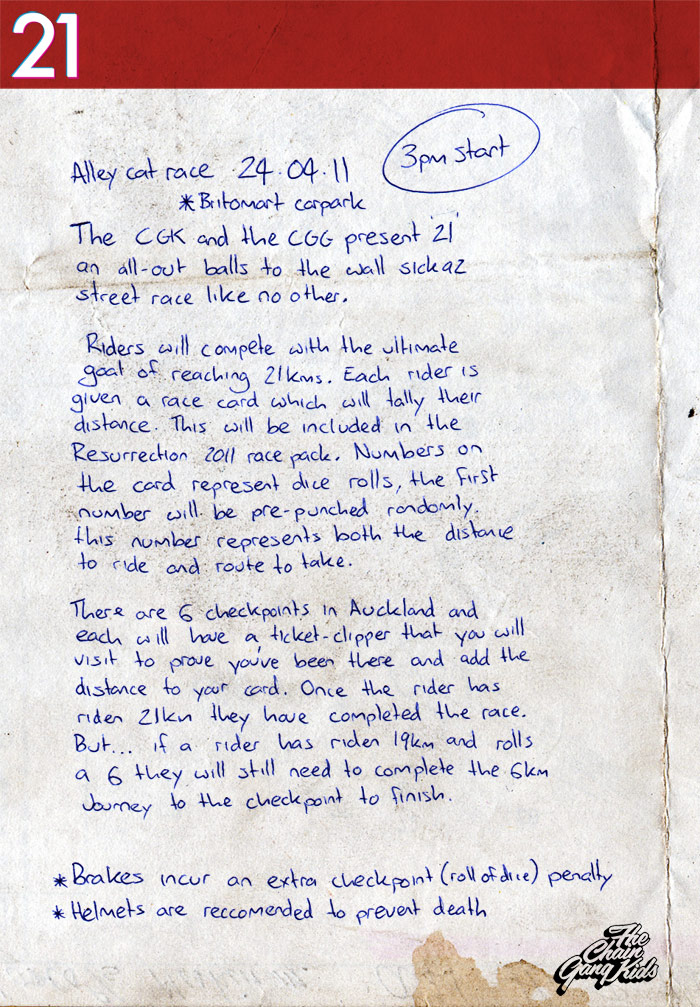 21
3pm start
Alley cat race 24.04.11
*Britomart carpark
The CGK and the CGG present '21'
an all-out balls to the wall sickaz
street race like no other.
Riders will compete with the ultimate
goal of reaching 21kms. Each rider is
given a race card which will tally their
distance. This will be included in the
Resurrection 2011 race pack. Numbers on
the card represent dice rolls, the first
number will be pre-punched randomly.
this number represents both the distance
to ride and route to take.
There are 6 checkpoints in Auckland and
each will have a ticket-clipper that you will
visit to prove you've been there and add the
distance to your card. Once the rider has
riden 21km they have completed the race.
But... if a rider has riden 19km and rolls
a 6 they will still need to complete the 6km
Journey to the checkpoint to finish.
*Brakes incur an extra checkpoint (roll of dice) penalty
*Helmets are reccomended to prevent death
The
Chain
Gang Kids